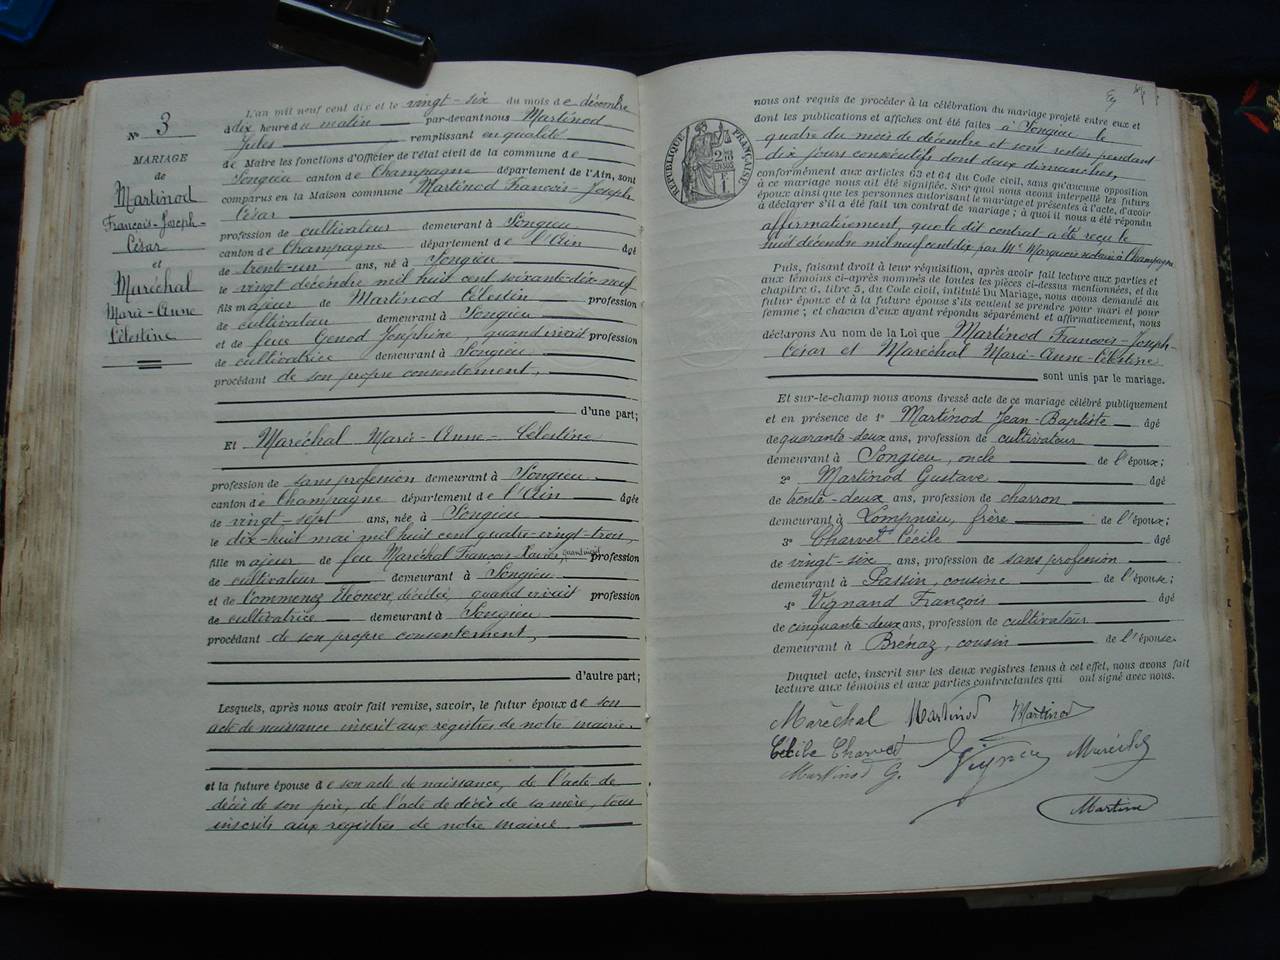 N° 3
MARIAGE
de
Martinod
François-Joseph-
César
et
Maréchal
Marie-Anne
Célestine
L'an mil neuf cent dix et le vingt-six du mois de décembre
à dix heure du matin par-devant nous Martinod
Jules remplissant en qualité
de Maire les fonctions d'Officier de l'état civil de la commune de
Songieu canton de Champagne département de l'Ain, sont
comparus en la Maison commune Martinod François-Joseph
César
profession de cultivateur demeurant à Songieu
canton de Champagne département de l'Ain âgé
de trente-un ans, né à Songieu
le vingt décembre mil huit cent soixante-dix-neuf
fils majeur de Martinod Célestin profession
de cultivateur demeurant à Songieu
et de feue Genod Joséphine quand vivait profession
de cultivatrice demeurant à Songieu
procédant de son propre consentement,
d'une part;
Et Maréchal Marie-Anne-Célestine
profession de sans profession demeurant à Songieu
canton de Champagne département de l'Ain âgée
de vingt-sept ans, née à Songieu
le dix-huit mai mil huit cent quatre-vingt-trois,
fille majeur de feu Maréchal François-Xavier, quand vivait profession
de cultivateur demeurant à Songieu
et de Commenez Eléonore, décédée, quand vivait profession
de cultivatrice demeurant à Songieu
procédant de son propre consentement,
d'autre part;
Lesquels, après nous avoir fait remise, savoir, le futur époux de son
acte de naissance inscrit aux registres de notre mairie.
et la future épouse de son acte de naissance, de l'acte de
décès de son père, de l'acte de décès de sa mère, tous
inscrits aux registres de notre mairie.
nous ont requis de procéder à la célébration du mariage projeté entre eux et
dont les publications et affiches ont été faites à Songieu le
quatre du mois de décembre et sont restés pendant
dix jours consécutifs dont deux dimanches,
conformément aux articles 63 et 64 du Code civil, sans qu'aucune opposition
à ce mariage nous ait été signifiée. Sur quoi nous avons interpellé les futurs
époux ainsi que les personnes autorisant le mariage et présentes à l'acte, d'avoir
à déclarer s'il a été fait un contrat de mariage; à quoi il nous a été répondu
affirmativement, que le dit contrat a été reçu le
huit décembre mil neuf cent dix par Me Marquois notaire à Champagne
Puis, faisant droit à leur réquisition, après avoir fait lecture aux parties et
aux témoins ci-après nommés de toutes les pièces ci-dessus mentionnées, et du
chapitre 6, titre 5, du Code civil, intitulé Du Mariage, nous avons demandé au
futur époux et à la future épouse s'ils veulent se prendre pour mari et pour
femme; et chacun d'eux ayant répondu séparément et affirmativement, nous
déclarons Au nom de la Loi que Martinod François-Joseph-
César et Maréchal Marie-Anne-Célestine
sont unis par le mariage.
Et sur-le-champ nous avons dressé acte de ce mariage célébré publiquement
et en présence de 1° Martinod Jean-Baptiste âgé
de quarante-deux ans, profession de cultivateur
demeurant à Songieu, oncle de l'époux;
2° Martinod Gustave âgé
de trente-deux ans, profession de charron
demeurant à Lompnieu, frère de l'époux;
3° Charvet Cécile âgé
de vingt-six ans, profession de sans profession
demeurant à Passin, cousine de l'épouse;
4° Vignand François âgé
de cinquante-deux ans, profession de cultivateur
demeurant à Brénaz, cousin de l'épouse
Duquel acte, inscrit sur les deux registres tenus à cet effet, nous avons fait
lecture aux témoins et aux parties contractantes qui ont signé avec nous.
RÉPUBLIQUE FRANÇAISE
Maréchal Martinod Martinod
Cécile Charvet
Martinod G.